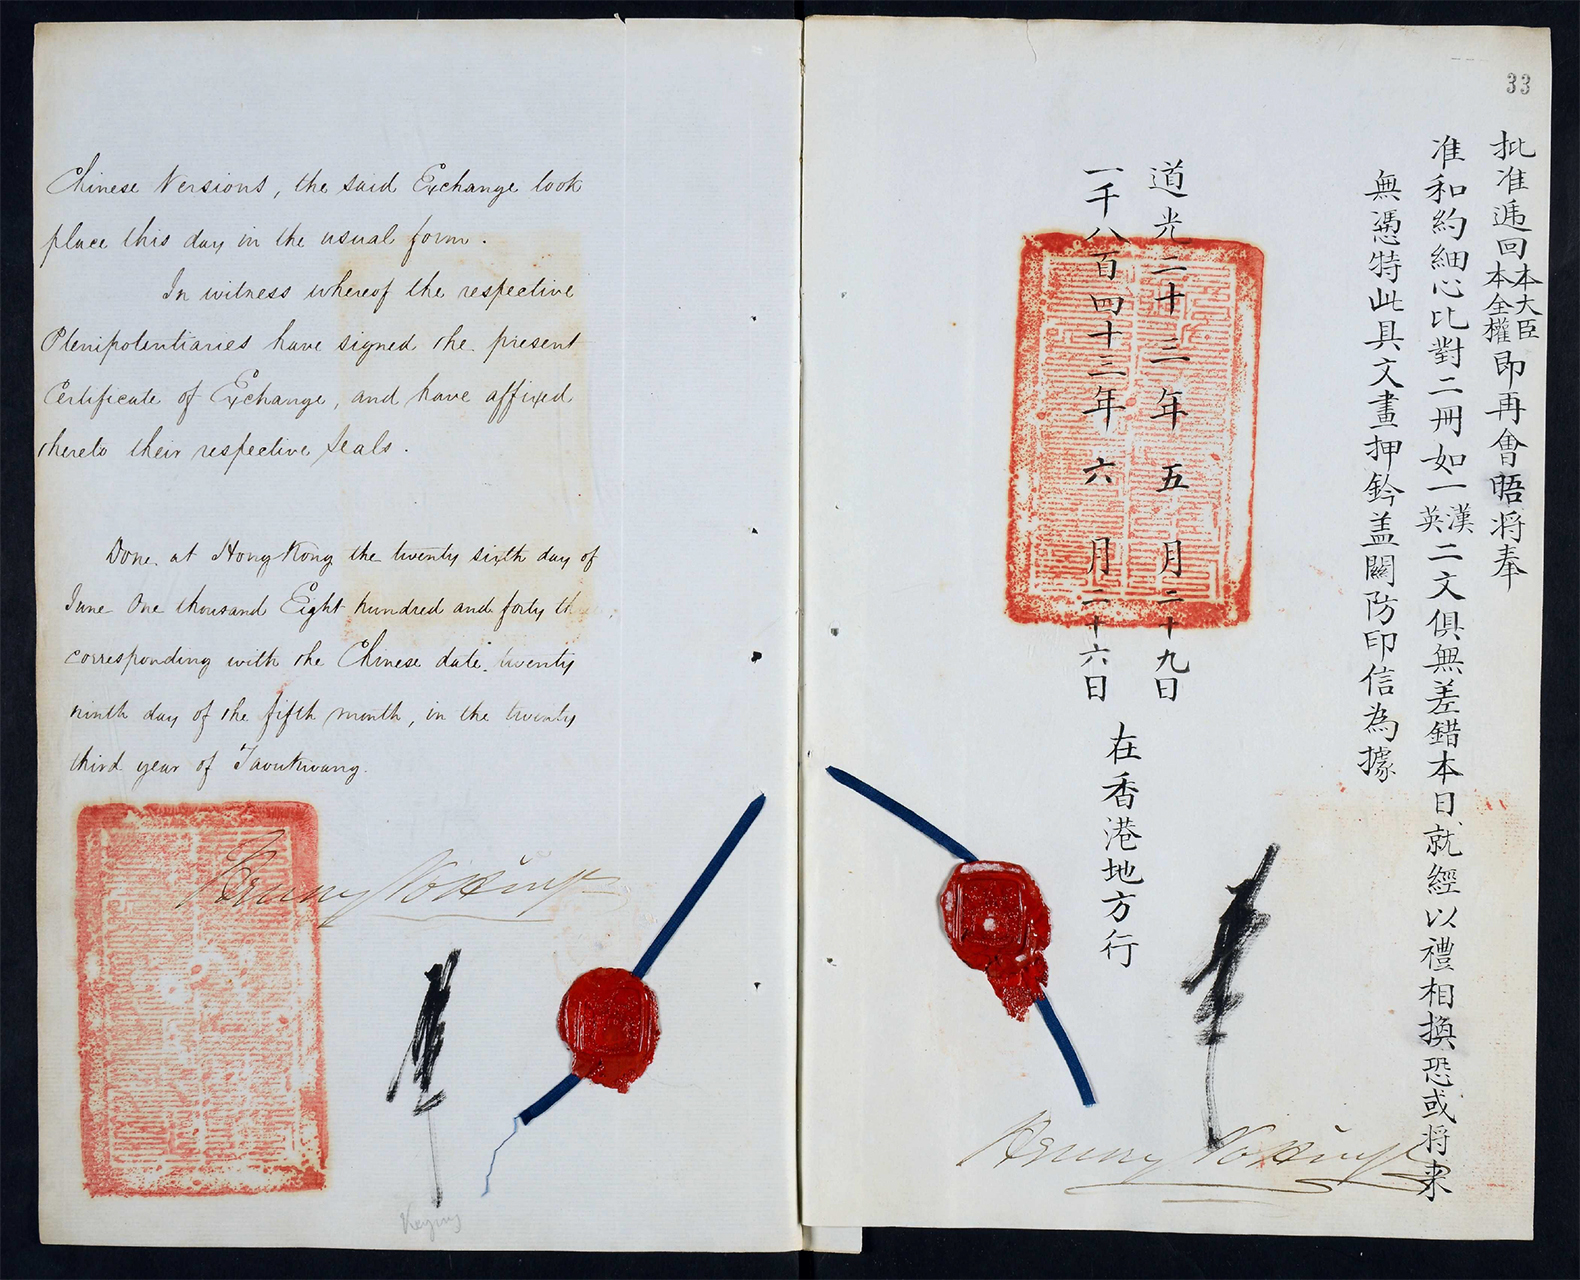 Chinese Versions, the said Exchange took
place this day in the usual form.
In witness whereof the respective
Plenipotentiaries have signed the present
Certificate of Exchange, and have affixed
thereto their respective Seals.
Done at HongKong the twenty sixth day of
June One thousand Eight hundred and forty th
corresponding with the Chinese date, twenty
ninth day of the fifth month, in the twenty
third year of Taoukwang.
Henry Pottinger
Keying
33
批准遞回本大臣本全權即再會晤将奉
准和約細心比對二冊如一漢英二文俱無差錯本日就經以禮相換恐或将来
無憑特此具文畫押鈐盖關防印信為據
道光二十三年五月二十九日
一千八百四十三年六月二十六日
在香港地方行
Henry Pottinger